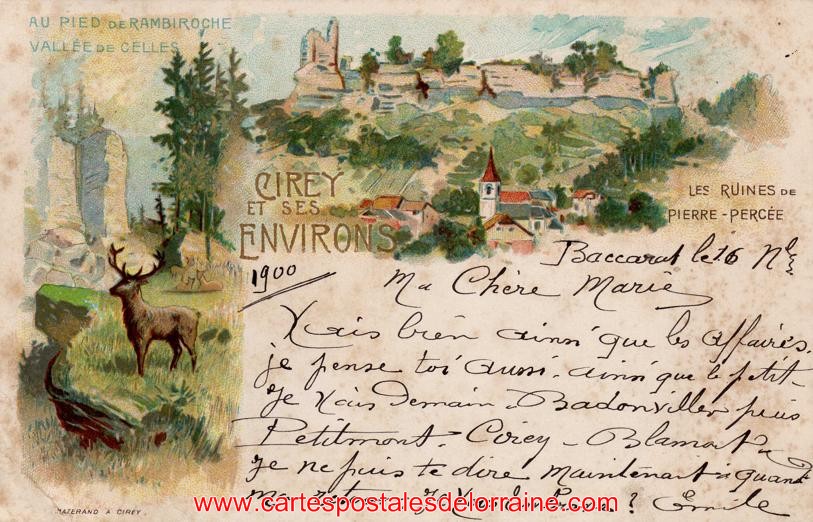 AU PIED DE RAMBIROCHE
VALLÉE DE CELLES
CIREY
ET SES
ENVIRONS
LES RUINES DE
PIERRE-PERCÉE
Baccarat le 16
1900
Ma Chère Marie
Vais bien ainsi que les affaires.
je pense toi aussi. ainsi que le petit_
Je Vais Demain. Badonviller puis
Petitmont. Cirey _ Blamont
Je ne puis te dire maintenant à quand
? Emile
MATERAND A CIREY.
www.cartespostalesdelorraine.com